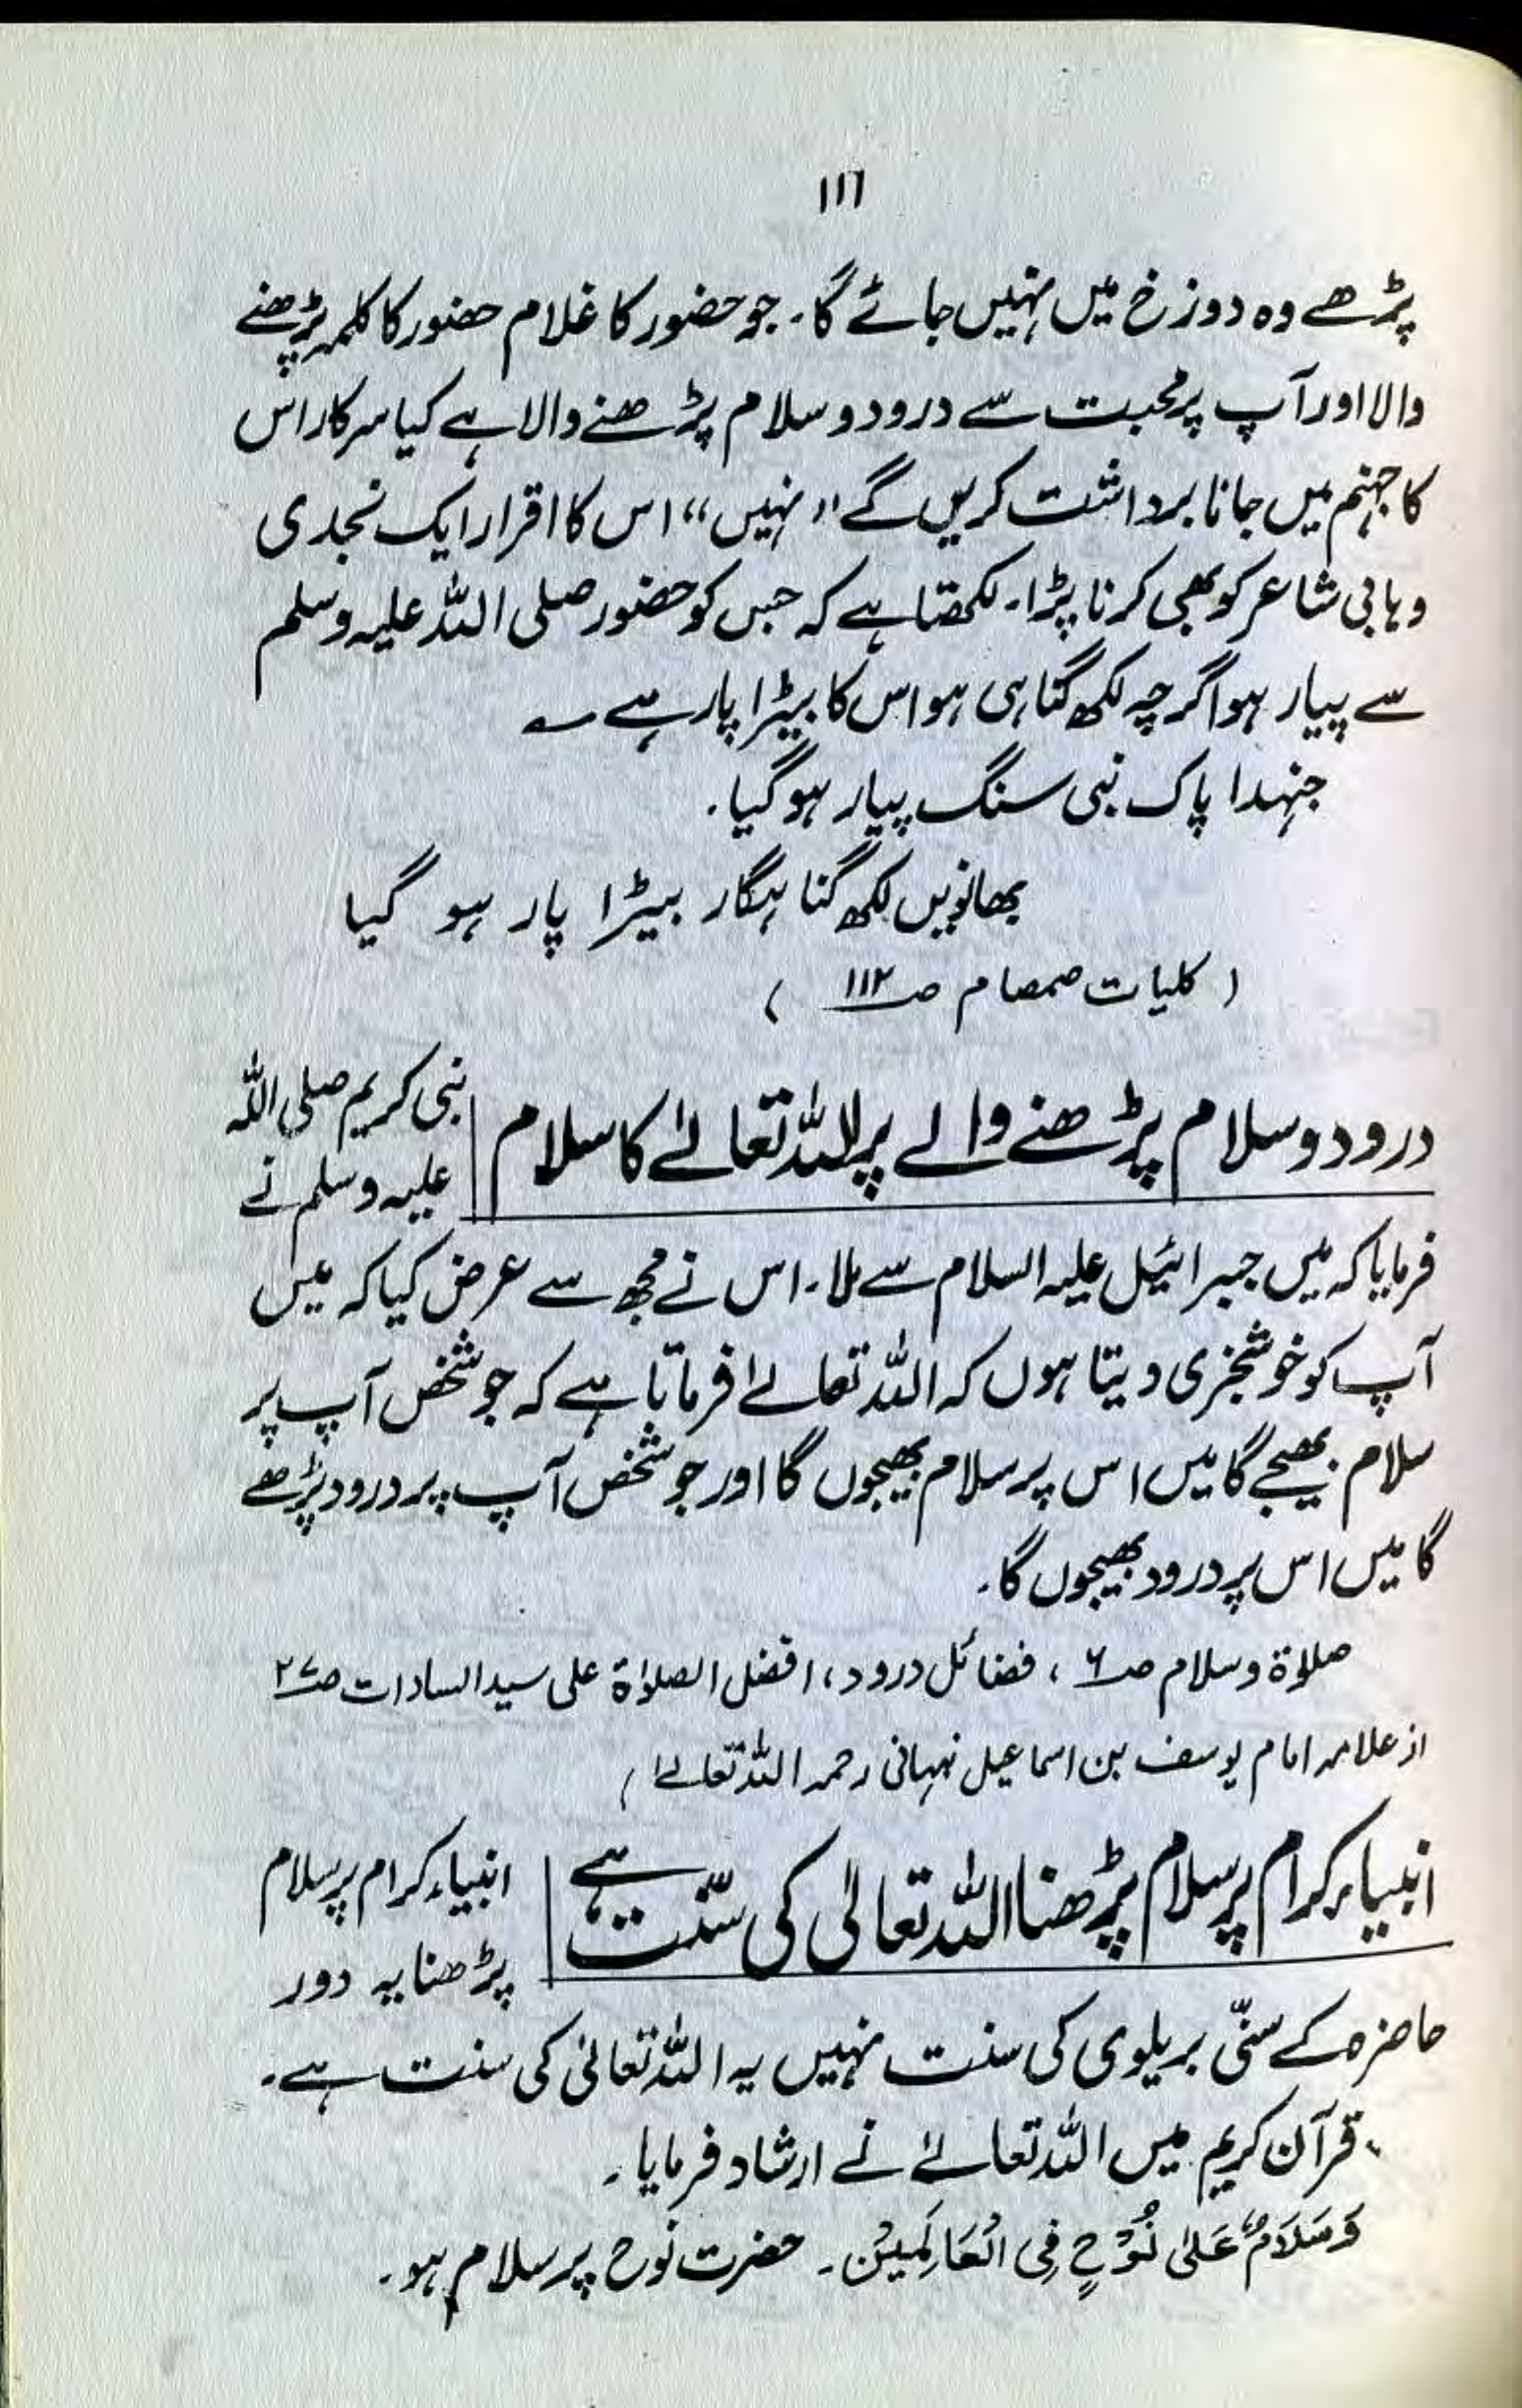 ۱۱٦
پڑھے وہ دوزخ میں نہیں جائے گا۔ جو حضور کا غلام حضور کا کلمہ پڑھنے
والا اور آپ پر محبت سے درود و سلام پڑھنے والا ہے کیا سرکار اس
کا جہنم میں جانا برداشت کریں گے "نہیں" اس کا اقرار ایک نجدی
وہابی شاعر کو بھی کرنا پڑا۔ لکھتا ہے کہ جس کو حضور صلی اللہ علیہ وسلم
سے پیار ہو اگرچہ لکھ گناہی ہو اس کا بیڑا پار ہے ؎
جنہدا پاک نبی سنگ پیار ہو گیا۔
بھانویں لکھ گناہگار بیڑا پار ہو گیا
( کلیات صمصام صـ ۱۱۲ )
درود و سلام پڑھنے والے پر اللہ تعالےٰ کا سلام
نبی کریم صلی اللہ
علیہ وسلم نے
فرمایا کہ میں جبرائیل علیہ السلام سے ملا۔ اس نے مجھ سے عرض کیا کہ میں
آپ کو خوشخبری دیتا ہوں کہ اللہ تعالےٰ فرماتا ہے کہ جو شخص آپ پر
سلام بھیجے گا میں اس پر سلام بھیجوں گا اور جو شخص آپ پر درود پڑھے
گا میں اس پر درود بھیجوں گا۔
صلوٰۃ و سلام صـ ۶ ، فضائل درود ، افضل الصلوٰۃ علی سید السادات صـ ۲۷
از علامہ امام یوسف بن اسماعیل نبہانی رحمہ اللہ تعالےٰ )
انبیاء کرام پر سلام پڑھنا اللہ تعالیٰ کی سنّت ہے
انبیاء کرام پر سلام
پڑھنا یہ دور
حاضرہ کے سنّی بریلوی کی سنت نہیں یہ اللہ تعالیٰ کی سنت ہے۔
قرآن کریم میں اللہ تعالےٰ نے ارشاد فرمایا۔
وَسَلَامٌ عَلٰی نُوْحٍ فِی الْعَالَمِیْنَ ۔ حضرت نوح پر سلام ہو۔